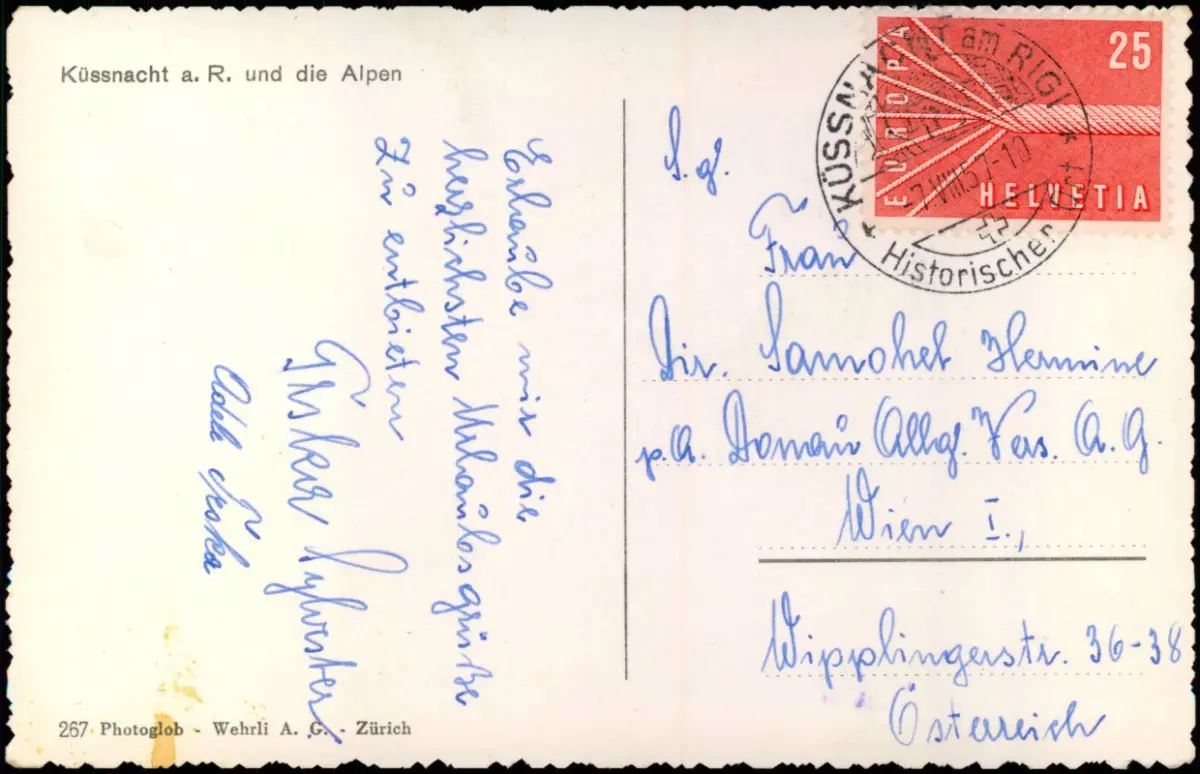 Küssnacht a. R. und die Alpen
Erlaube mir die
herzlichsten Urlaubsgrüße
zu entbieten
Sylvester
Adele
267 Photoglob - Wehrli A. G. - Zürich
EUROPA
25
HELVETIA
KÜSSNACHT am RIGI
-7.VIII.57-10
Historischer Ort
S. g.
Frau
Dir. Samohel Hermine
p. A. Donau Allg. Vers. A. G.
Wien I.,
Wipplingerstr. 36-38
Österreich